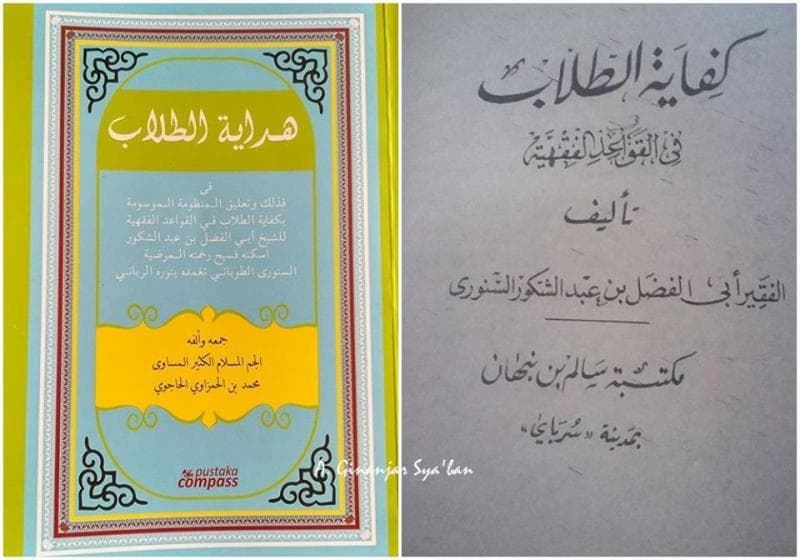 هداية الطلاب
فى
فذلك وتعليق المنظومة الموسومة
بكفاية الطلاب في القواعد الفقهية
للشيخ أبي الفضل بن عبد الشكور
أسكنه فسيح رحمته المرضية
السنورى الطوباني تغمده بنوره الرباني
جمعه وألفه
الجم المسلام الكثير المساوى
محمد بن الحمزاوي الحاجوي
pustaka
compass
كفاية الطلاب
فى القواعد الفقهية
تأليف
الفقير أبى الفضل بن عبد الشكور السنورى
مكتبة سالم بن نبهان
بمدينة «سرباي»
A Ginanjar Sya'ban